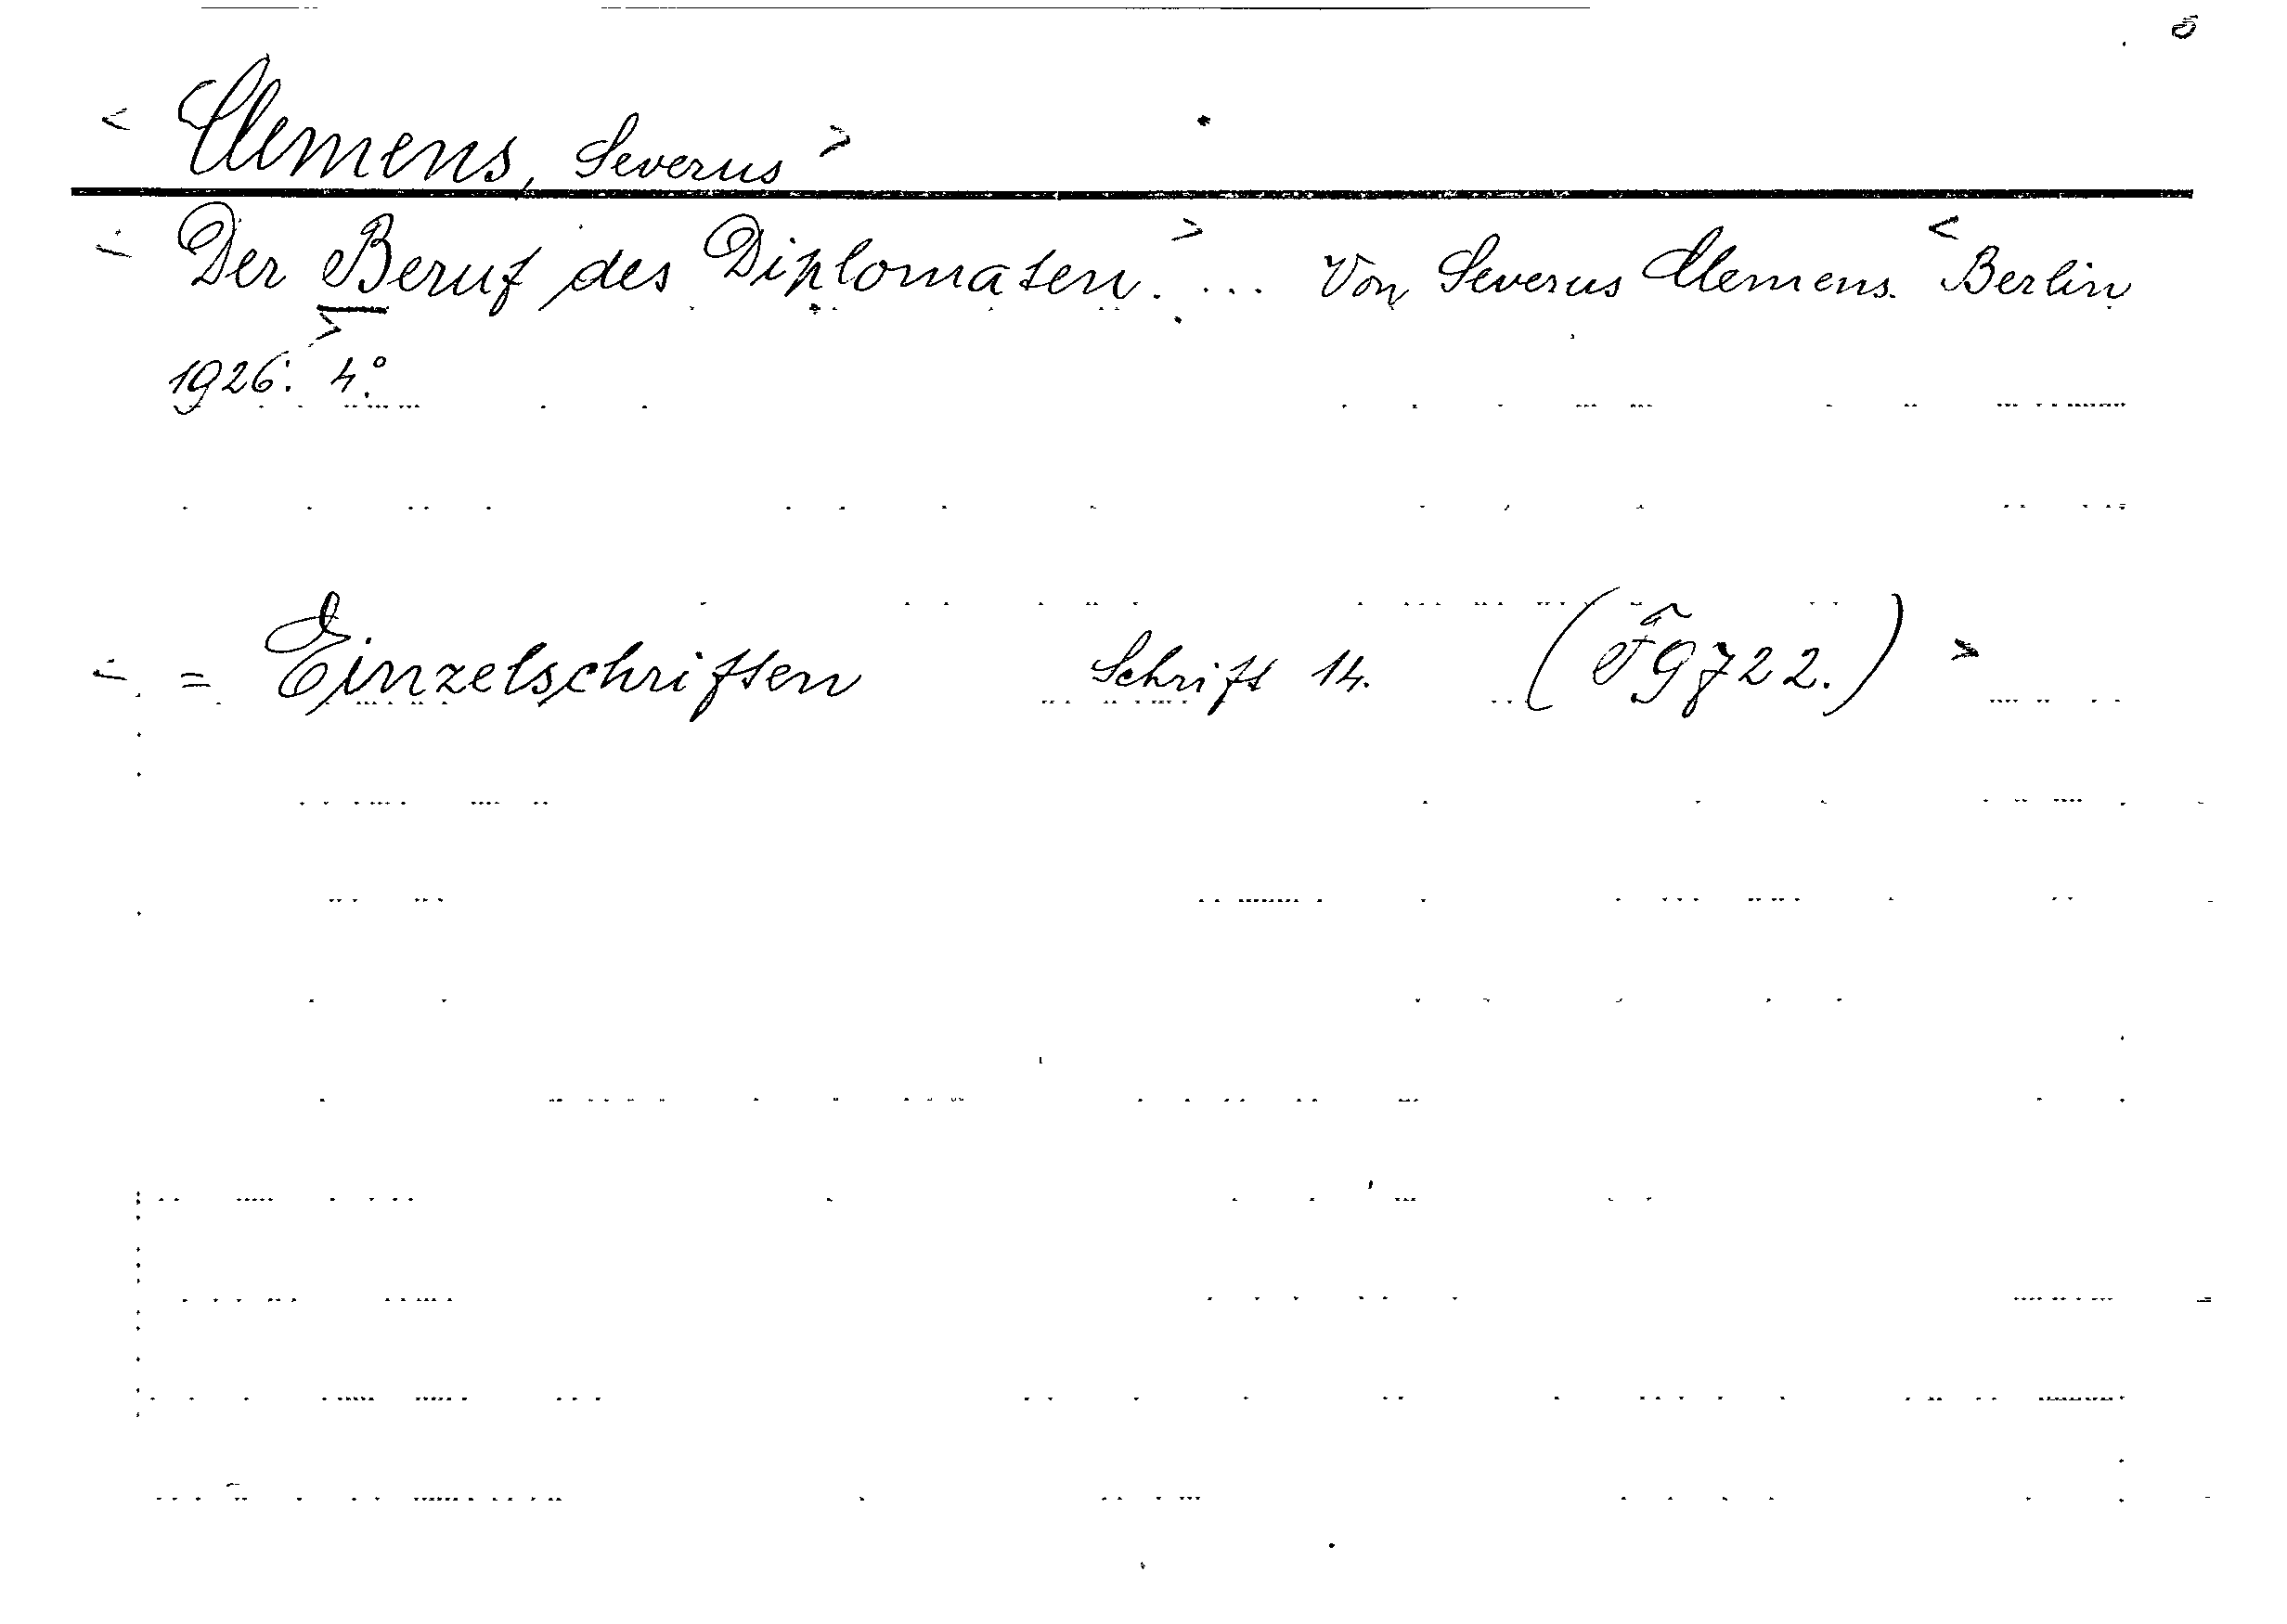 < Clemens, Severus >
< Der Beruf des Diplomaten. > ... Von Severus Clemens. < Berlin
1926. 4°. >
< = Einzelschriften Schrift 14. (F9722.) >